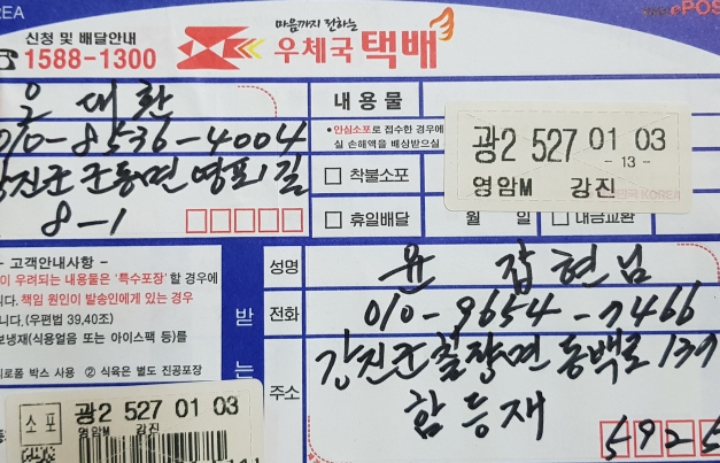 EA
ePOS
신청 및 배달안내
1588-1300
마음까지 전하는
우체국택배
윤 대환
010-8536-4004
강진군 군동면 영포1길
8-1
내용물
•안심소포로 접수한 경우에
실 손해액을 배상받으실
착불소포
휴일배달
월 일
대금교환
광2 527 01 03
- 13 -
영암M 강진
KOREA
- 고객안내사항 -
이 우려되는 내용물은 '특수포장' 할 경우에
니다. 책임 원인이 발송인에게 있는 경우
니다.(우편법 39,40조)
보냉재(식용얼음 또는 아이스팩 등)를
티로폼 박스 사용 ② 식육은 별도 진공포장
받
는
성명
윤 잡현님
전화
010-9654-7466
주소
강진군 칠량면 동백로 139
함등재
5925
소포
광2 527 01 03
영암M 강진